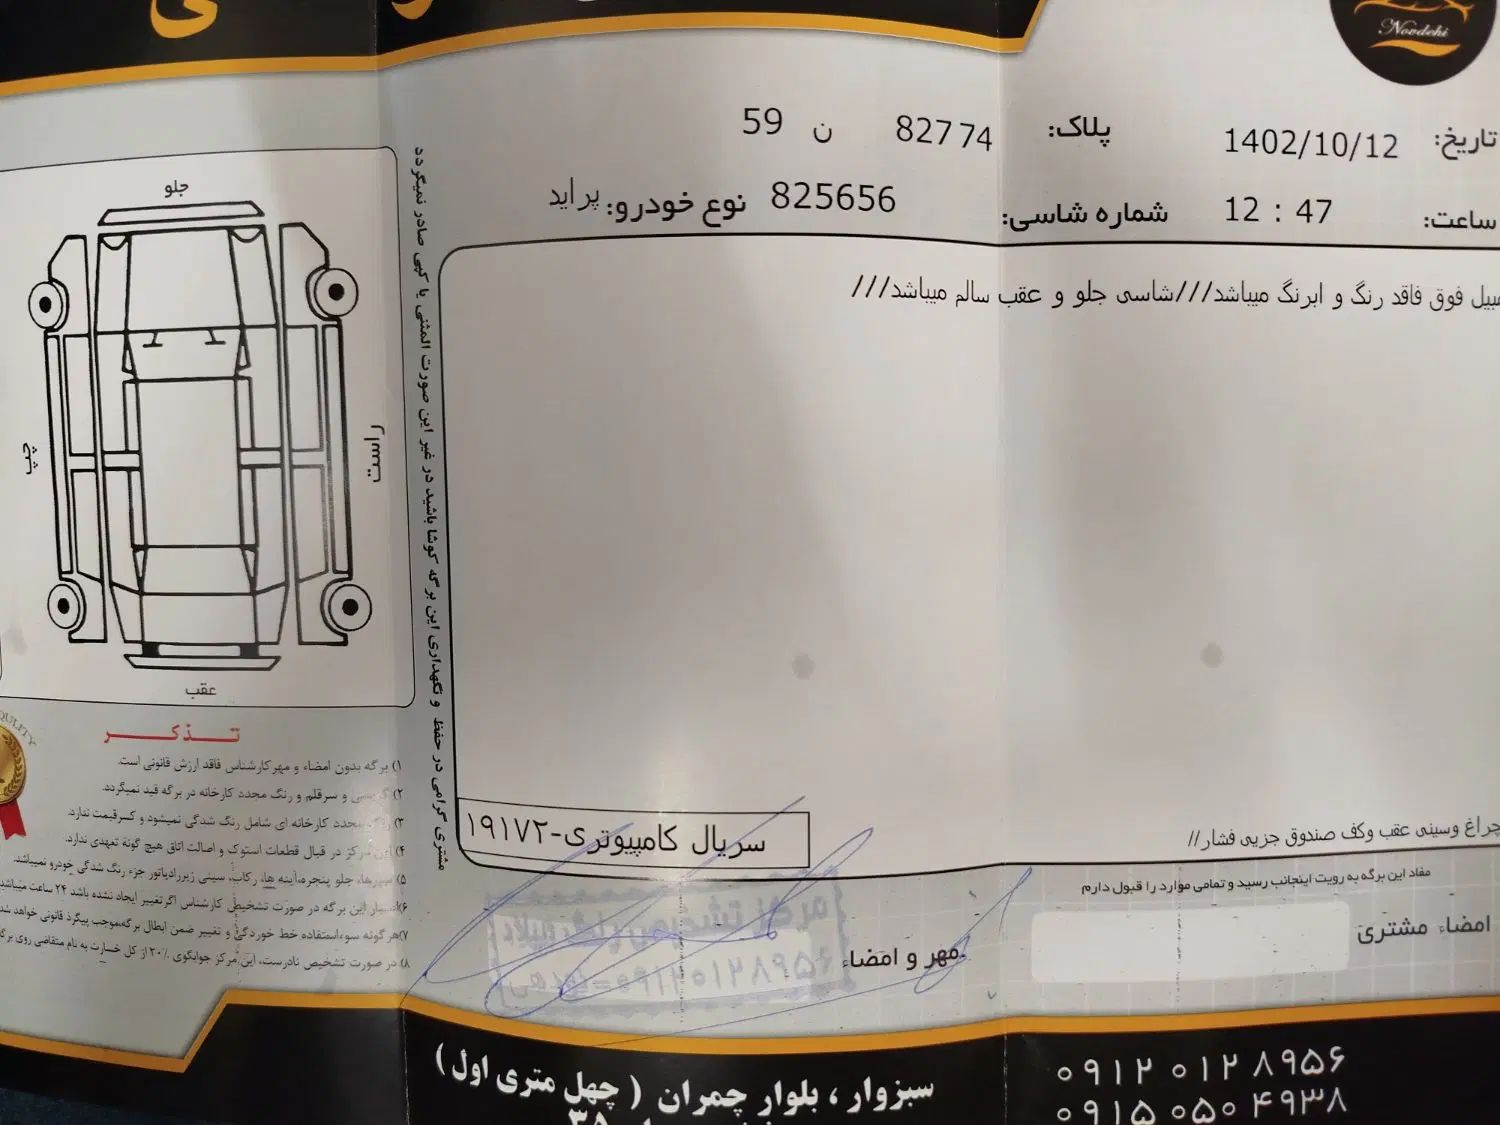 Novdehi
تاریخ: 1402/10/12
پلاک: 82774 ن 59
ساعت: 12 : 47
شماره شاسی: 825656
نوع خودرو: پراید
فوق فاقد رنگ و ابرنگ میباشد///شاسی جلو و عقب سالم میباشد///
جلو
چپ
راست
عقب
مشتری گرامی در حفظ و نگهداری این برگه کوشا باشید در غیر این صورت المثنی یا کپی صادر نمیگردد
تذکر
۱) برگه بدون امضاء و مهر کارشناس فاقد ارزش قانونی است.
۲) و سرقلم و رنگ مجدد کارخانه در برگه قید نمیگردد.
۳) مجدد کارخانه ای شامل رنگ شدگی نمیشود و کسر قیمت ندارد.
۴) این مرکز در قبال قطعات استوک و اصالت اتاق هیچ گونه تعهدی ندارد.
۵) سپرها، جلو پنجره، آینه ها، رکاب، سینی زیررادیاتور جزء رنگ شدگی خودرو نمیباشد.
۶) اعتبار این برگه در صورت تشخیص کارشناس اگر تغییر ایجاد نشده باشد ۲۴ ساعت میباشد
۷) هر گونه سوءاستفاده خط خوردگی و تغییر ضمن ابطال برگه، موجب پیگرد قانونی خواهد شد
۸) در صورت تشخیص نادرست، این مرکز جوابگوی ۳۰٪ از کل خسارت به نام متقاضی روی
سریال کامپیوتری-۱۹۱۷۲
چراغ وسینی عقب وکف صندوق جزیی فشار//
مفاد این برگه به رویت اینجانب رسید و تمامی موارد را قبول دارم
امضاء مشتری
مهر و امضاء
سبزوار ، بلوار چمران ( چهل متری اول )
۰۹۱۲ ۰۱۲ ۸۹۵۶
۰۹۱۵ ۵۰۵ ۴۹۳۸